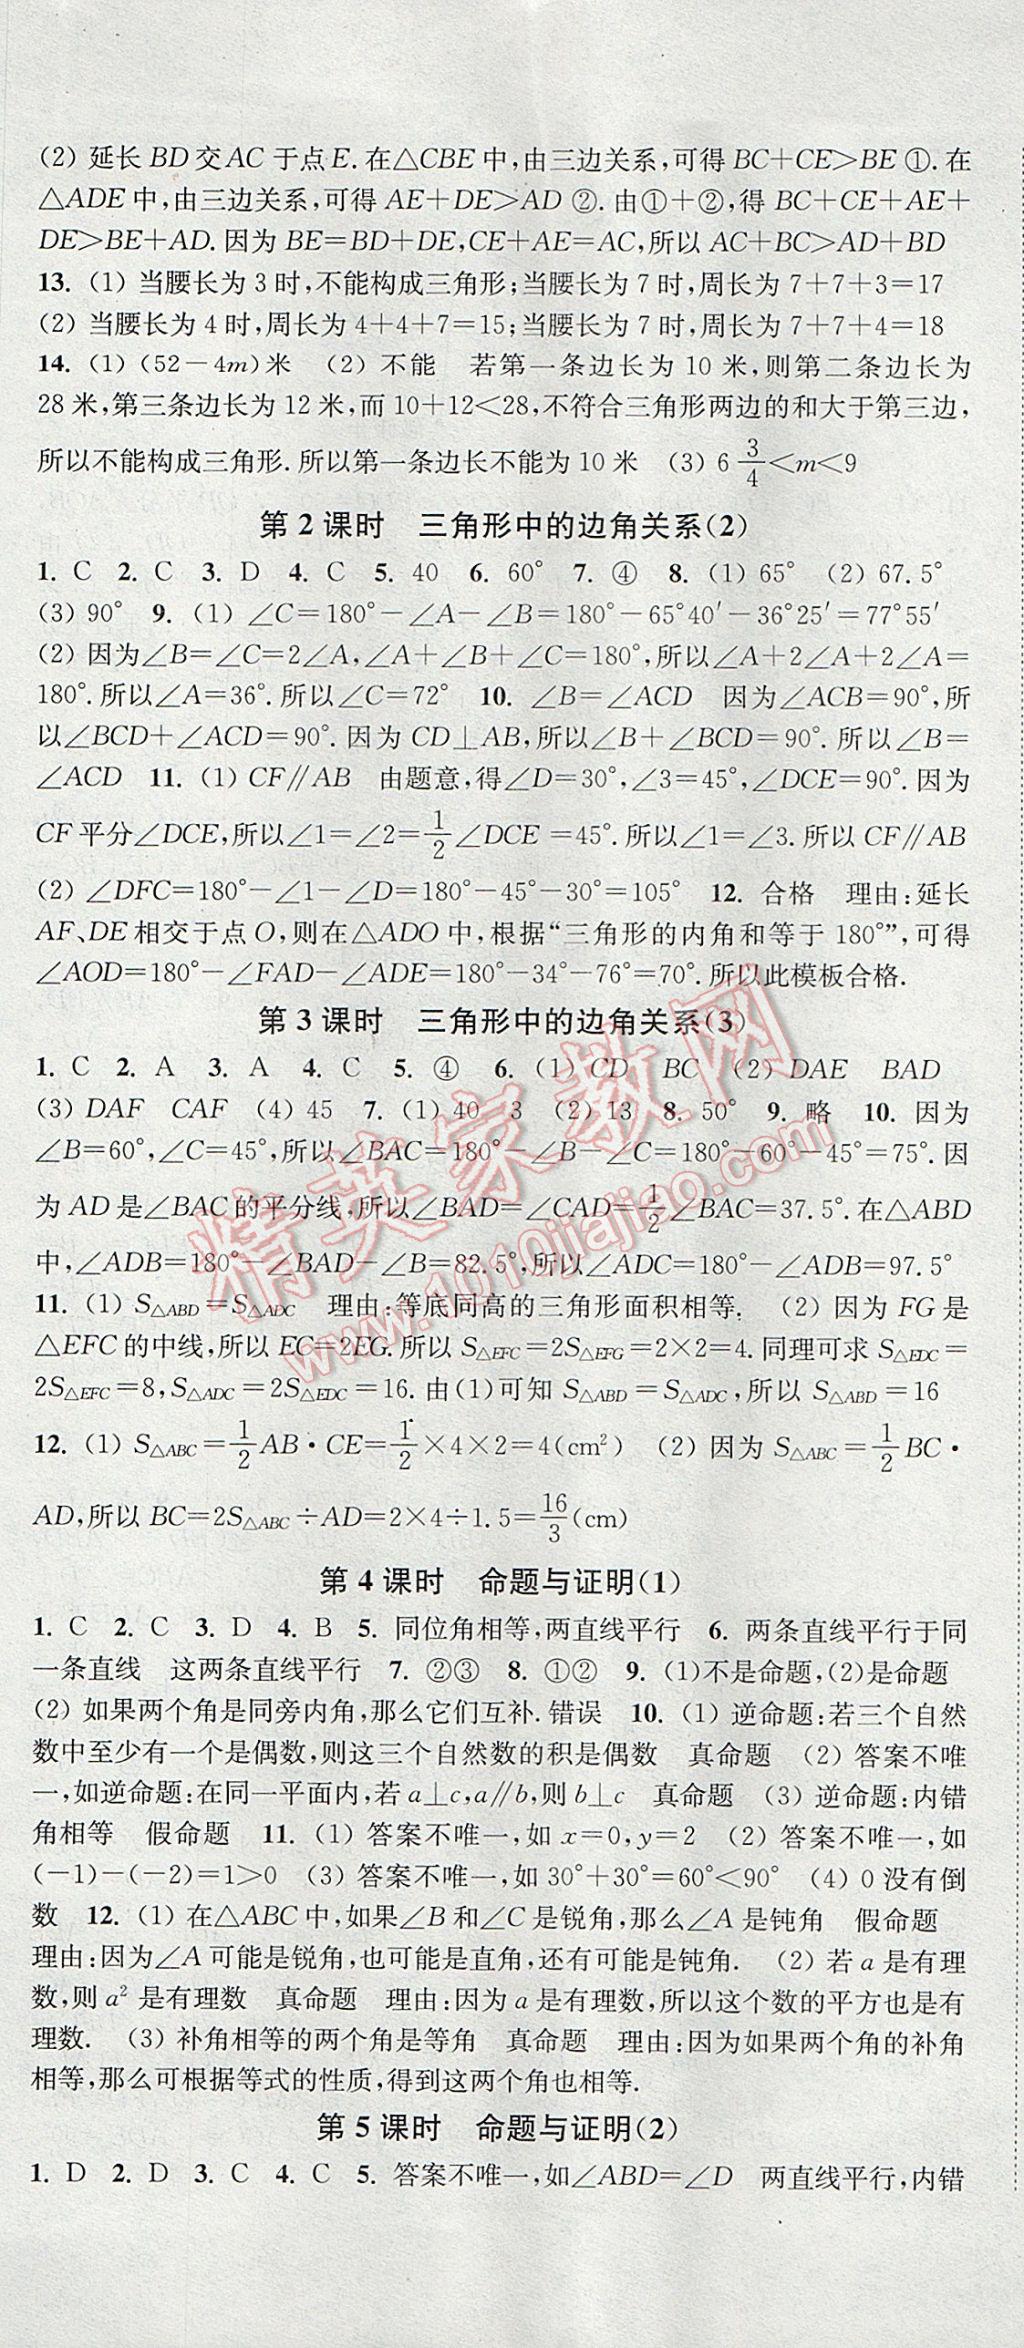 (2) 延长 BD 交 AC 于点 E. 在△CBE 中,由三边关系,可得 BC＋CE＞BE ①. 在
△ADE 中,由三边关系,可得 AE＋DE＞AD ②. 由①＋②,得 BC＋CE＋AE＋
DE＞BE＋AD. 因为 BE＝BD＋DE,CE＋AE＝AC,所以 AC＋BC＞AD＋BD
13. (1) 当腰长为 3 时,不能构成三角形;当腰长为 7 时,周长为 7＋7＋3＝17
(2) 当腰长为 4 时,周长为 4＋4＋7＝15;当腰长为 7 时,周长为 7＋7＋4＝18
14. (1) (52－4m)米 (2) 不能 若第一条边长为 10 米,则第二条边长为
28 米,第三条边长为 12 米,而 10＋12＜28,不符合三角形两边的和大于第三边,
所以不能构成三角形. 所以第一条边长不能为 10 米 (3) 6 3/4＜m＜9
第 2 课时 三角形中的边角关系(2)
1. C 2. C 3. D 4. C 5. 40 6. 60° 7. ④ 8. (1) 65° (2) 67.5°
(3) 90° 9. (1) ∠C＝180°－∠A－∠B＝180°－65°40′－36°25′＝77°55′
(2) 因为∠B＝∠C＝2∠A,∠A＋∠B＋∠C＝180°,所以∠A＋2∠A＋2∠A＝
180°. 所以∠A＝36°. 所以∠C＝72° 10. ∠B＝∠ACD 因为∠ACB＝90°,所
以∠BCD＋∠ACD＝90°. 因为 CD⊥AB,所以∠B＋∠BCD＝90°. 所以∠B＝
∠ACD 11. (1) CF∥AB 由题意,得∠D＝30°,∠3＝45°,∠DCE＝90°. 因为
CF 平分∠DCE,所以∠1＝∠2＝1/2∠DCE ＝45°. 所以∠1＝∠3. 所以 CF∥AB
(2) ∠DFC＝180°－∠1－∠D＝180°－45°－30°＝105° 12. 合格 理由:延长
AF、DE 相交于点 O,则在△ADO 中,根据“三角形的内角和等于 180°”,可得
∠AOD＝180°－∠FAD－∠ADE＝180°－34°－76°＝70°. 所以此模板合格.
第 3 课时 三角形中的边角关系(3)
1. C 2. A 3. A 4. C 5. ④ 6. (1) CD BC (2) DAE BAD
(3) DAF CAF (4) 45 7. (1) 40 3 (2) 13 8. 50° 9. 略 10. 因为
∠B＝60°,∠C＝45°,所以∠BAC＝180°－∠B－∠C＝180°－60°－45°＝75°. 因
为 AD 是∠BAC 的平分线,所以∠BAD＝∠CAD＝1/2∠BAC＝37.5°. 在△ABD
中,∠ADB＝180°－∠BAD－∠B＝82.5°,所以∠ADC＝180°－∠ADB＝97.5°
11. (1) S△ABD＝S△ADC 理由:等底同高的三角形面积相等. (2) 因为 FG 是
△EFC 的中线,所以 EC＝2EG. 所以 S△EFC＝2S△EFG＝2×2＝4. 同理可求 S△EDC＝
2S△EFC＝8,S△ADC＝2S△EDC＝16. 由(1)可知 S△ABD＝S△ADC,所以 S△ABD＝16
12. (1) S△ABC＝1/2 AB·CE＝1/2×4×2＝4(cm²) (2) 因为 S△ABC＝1/2 BC·
AD,所以 BC＝2S△ABC÷AD＝2×4÷1.5＝16/3(cm)
第 4 课时 命题与证明(1)
1. C 2. C 3. D 4. B 5. 同位角相等,两直线平行 6. 两条直线平行于同
一条直线 这两条直线平行 7. ②③ 8. ①② 9. (1)不是命题,(2)是命题
(2) 如果两个角是同旁内角,那么它们互补. 错误 10. (1) 逆命题:若三个自然
数中至少有一个是偶数,则这三个自然数的积是偶数 真命题 (2) 答案不唯
一,如逆命题:在同一平面内,若 a⊥c,a∥b,则 b⊥c 真命题 (3) 逆命题:内错
角相等 假命题 11. (1) 答案不唯一,如 x＝0,y＝2 (2) 答案不唯一,如
(－1)－(－2)＝1＞0 (3) 答案不唯一,如 30°＋30°＝60°＜90° (4) 0 没有倒
数 12. (1) 在△ABC 中,如果∠B 和∠C 是锐角,那么∠A 是钝角 假命题
理由:因为∠A 可能是锐角,也可能是直角,还有可能是钝角. (2) 若 a 是有理
数,则 a² 是有理数 真命题 理由:因为 a 是有理数,所以这个数的平方也是有
理数. (3) 补角相等的两个角是等角 真命题 理由:因为如果两个角的补角
相等,那么可根据等式的性质,得到这两个角也相等.
第 5 课时 命题与证明(2)
1. D 2. D 3. C 4. C 5. 答案不唯一,如∠ABD＝∠D 两直线平行,内错
精英家教网
www.1010jiajiao.com